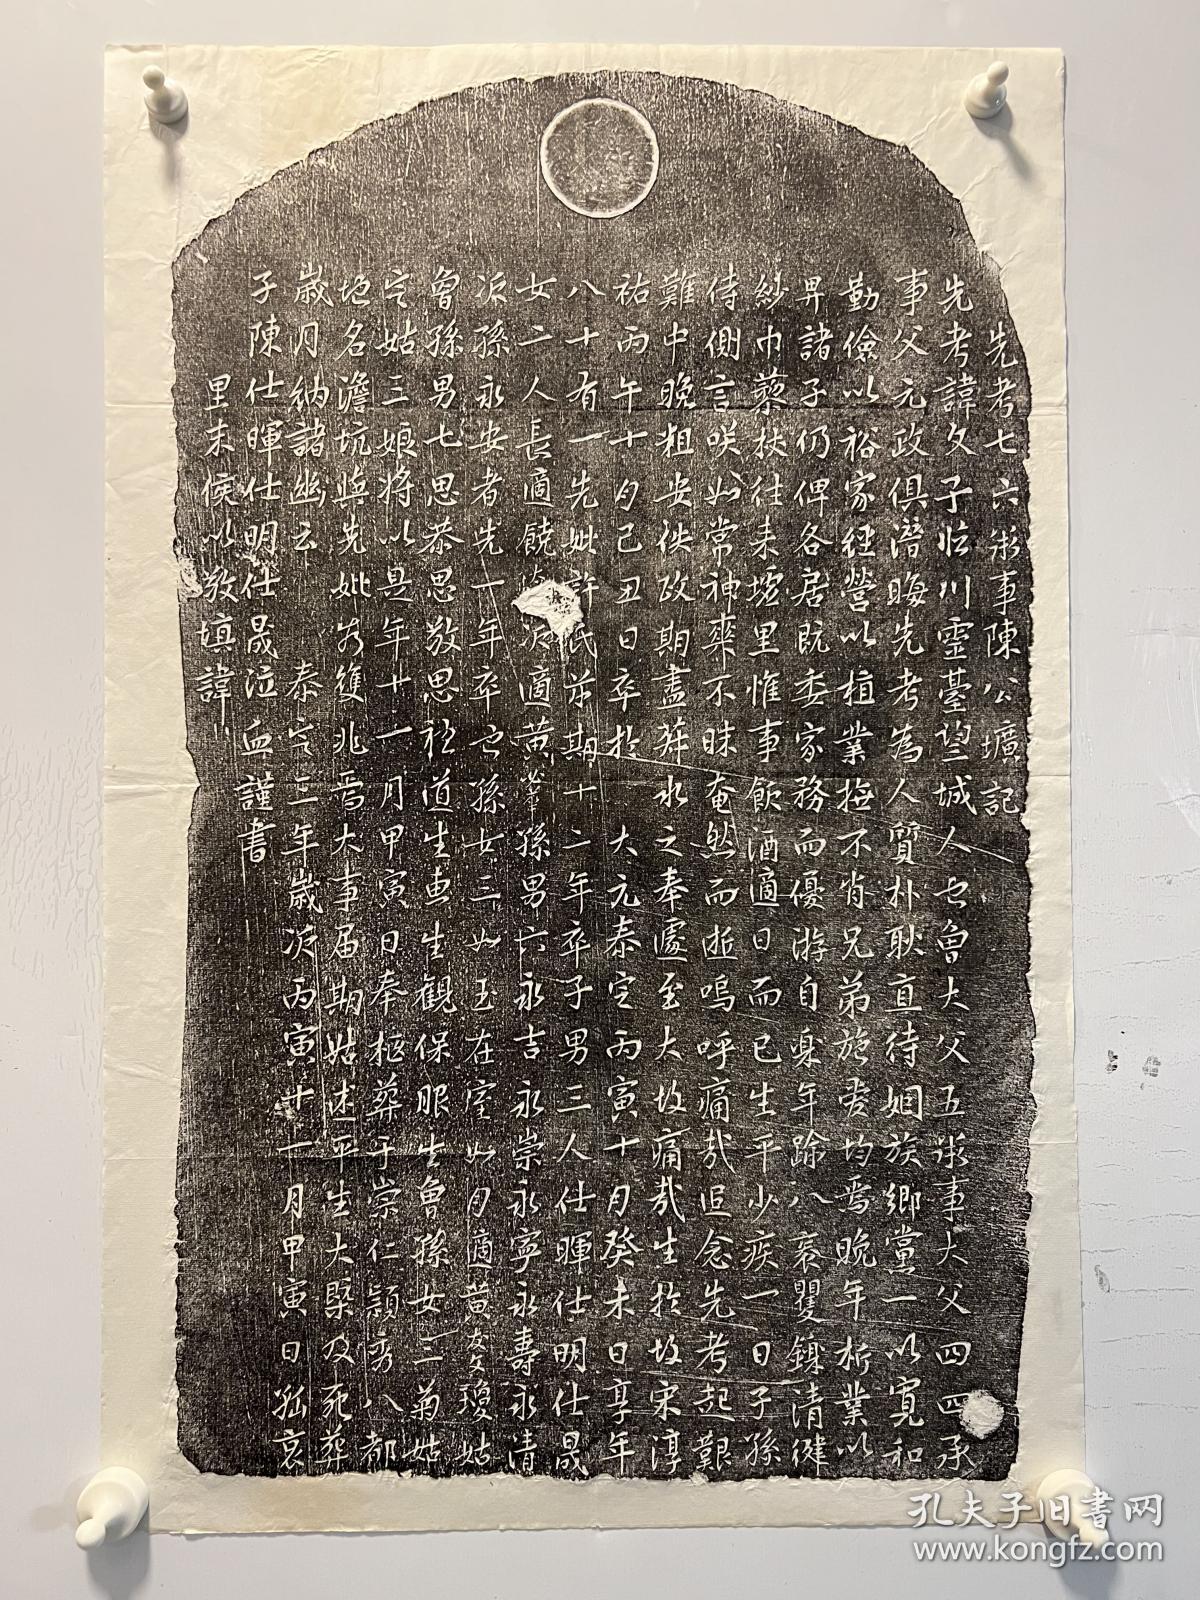 先考七六承事陳公壙記
先考諱文子臨川靈臺望城人也曾大父五承事大父四四承
事父元政俱潛晦先考為人質朴耿直待姻族鄉黨一以寬和
勤儉以裕家經營以植業撫不肖兄弟施愛均焉晚年析業以
畀諸子仍俾各居既委家務而優游自樂年踰八袠矍鑠清健
紗巾藜杖往来墟里惟事飲酒適日而已生平少疾一日子孫
侍側言咲如常神爽不昧奄然而逝嗚呼痛哉追念先考起艱
難中晚粗安佚政期盡菽水之奉遽至大故痛哉生於故宋淳
祐丙午十月己丑日卒於 大元泰定丙寅十月癸未日享年
八十有一先妣許氏前期十二年卒子男三人仕暉仕明仕晟
女二人長適饒 次適黄 孫男六永吉永崇永寧永壽永清
派孫永安者先一年卒也孫女三如玉在室如月適黄友文瓊姑
曾孫男七思恭思敬思禮道生惠生觀保眼生曾孫女三菊姑
定姑三娘将以是年十一月甲寅日奉柩葬于崇仁穎秀八都
地名澹坑與先妣共雙兆焉大事届期姑述平生大槩及死葬
歲月納諸幽云 泰定三年歲次丙寅十一月甲寅日孤哀
子陳仕暉仕明仕晟泣血謹書
里末侯以敬填諱
孔夫子旧书网
www.kongfz.com